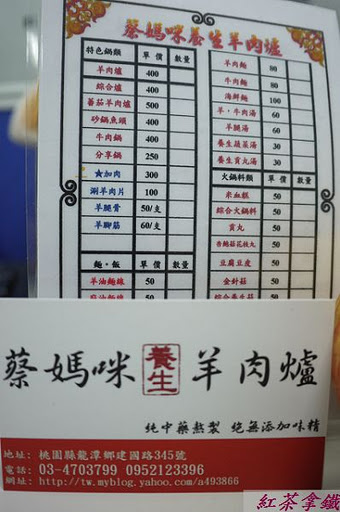 蔡媽咪養生羊肉爐
特色鍋類 單價 數量
羊肉爐 400
綜合爐 400
蕃茄羊肉爐 500
砂鍋魚頭 400
牛肉鍋 400
分享鍋 250
★加肉 300
涮羊肉片 100
羊腿骨 50/支
羊腳筋 60/支
麵、飯 單價 數量
羊油麵線 50
麻油麵線 50
羊肉麵 80
牛肉麵 80
海鮮麵 100
羊、牛肉湯 60
羊腿湯 60
養生蔬菜湯 30
養生貢丸湯 30
火鍋料類 單價 數量
米血糕 50
綜合火鍋料 50
貢丸 50
香菇花枝丸 50
豆腐豆皮 50
金針菇 50
綜合養生菇 50
蔡媽咪 養生 羊肉爐
純中藥熬製 絕無添加味精
地址: 桃園縣龍潭鄉建國路345號
電話: 03-4703799 0952123396
網址: http://tw.myblog.yahoo.com/a493866
紅茶拿鐵